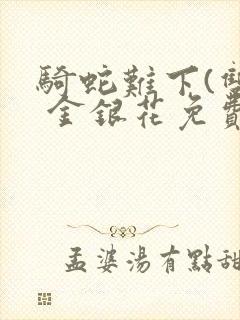 騎蛇難下(雙
金銀花免費
孟婆湯有點甜